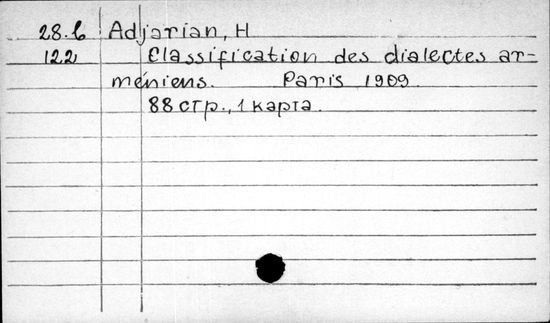 28.6 Adjarian, H
122 Classification des dialectes ar-
méniens. Paris 1909
88 стр., 1 карта.